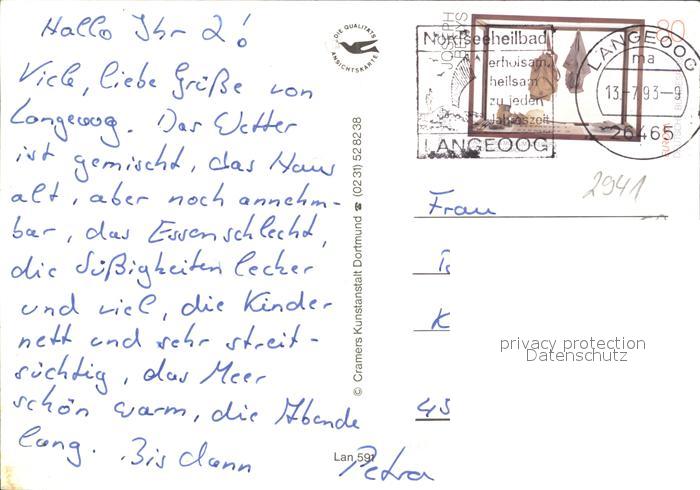 Hallo Ihr 2!
Viele, liebe Grüße von
Langeoog. Das Wetter
ist gemischt, das Haus
alt, aber noch annehm-
bar, das Essen schlecht,
die Süßigkeiten lecker
und viel, die Kinder
nett und sehr streit-
süchtig, das Meer
schön warm, die Abende
lang. Bis dann
Petra
DIE QUALITÄTS
ANSICHTSKARTE
© Cramers Kunstanstalt Dortmund ☎ (0231) 528238
Lan 591
Nordseeheilbad
erholsam,
heilsam
zu jeder
Jahreszeit
LANGEOOG
JOSEPH
BEUYS
80
LANGEOOG
ma
13.-7.93-9
26465
2941
Frau
K
45
privacy protection
Datenschutz